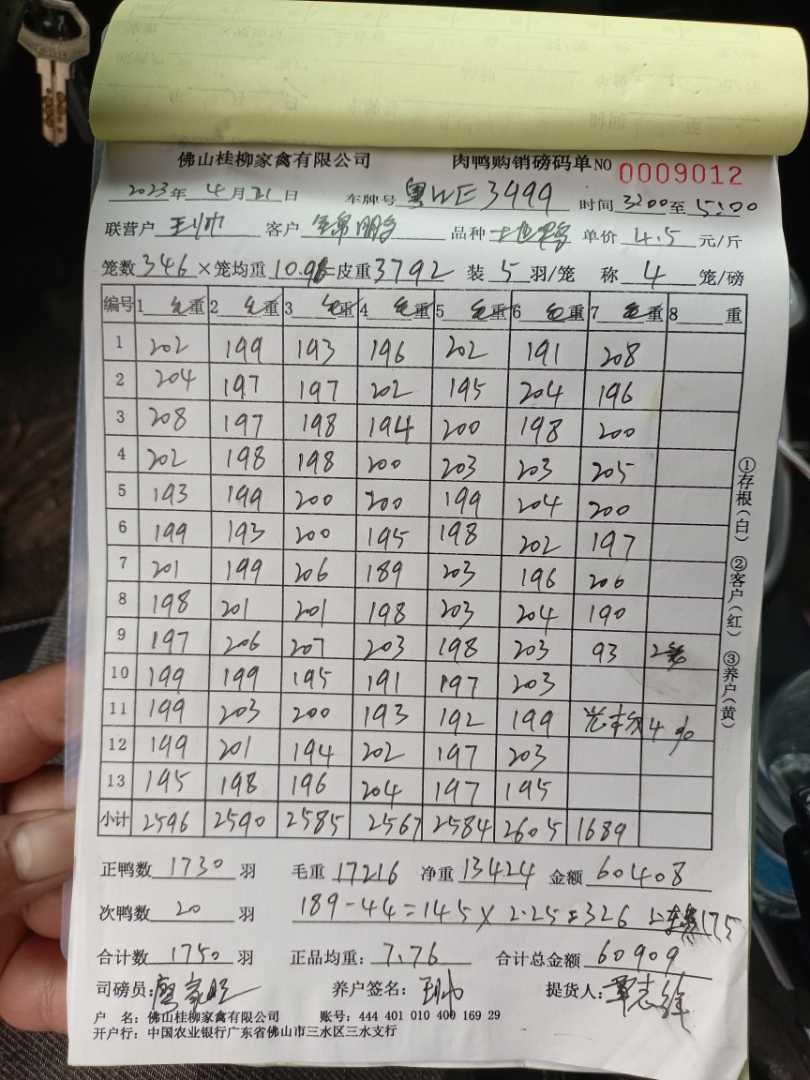 佛山桂柳家禽有限公司 肉鸭购销磅码单NO 0009012
2023年 4月21日 车牌号 粤WE3499 时间 3200至 5:00
联营户 客户 品种 单价 4.5 元/斤
笼数 346 ×笼均重 10.96=皮重 3792 装 5 羽/笼 称 4 笼/磅
编号 1 毛重 2 毛重 3 毛重 4 毛重 5 毛重 6 毛重 7 毛重 8 重
1 202 199 193 196 202 191 208
2 204 197 197 202 195 204 196
3 208 197 198 194 200 198 200
4 202 198 198 200 203 203 205
5 193 199 200 200 199 204 200
6 199 193 200 195 198 202 197
7 201 199 206 189 203 196 200
8 198 201 201 198 203 204 190
9 197 206 207 203 198 203 93
10 199 199 195 191 197 203
11 199 203 200 193 192 199 4%
12 199 201 194 202 197 203
13 195 198 196 204 197 195
小计 2596 2590 2585 2567 2584 2605 1689
正鸭数 1730 羽 毛重 17216 净重 13424 金额 60408
次鸭数 20 羽 189-44=145×2.25=326 175
合计数 1750 羽 正品均重: 7.76 合计总金额 60909
司磅员: 养户签名: 提货人:
户 名: 佛山桂柳家禽有限公司 账号: 444 401 010 400 169 29
开户行: 中国农业银行广东省佛山市三水区三水支行
①存根(白) ②客户(红) ③养户(黄)